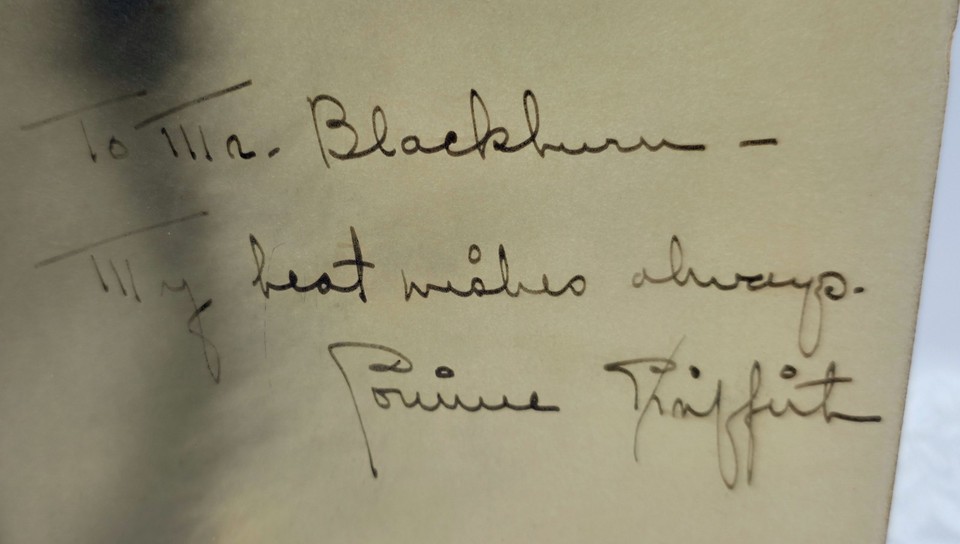 To Mr. Blackburn –
My best wishes always.
Corinne Griffith